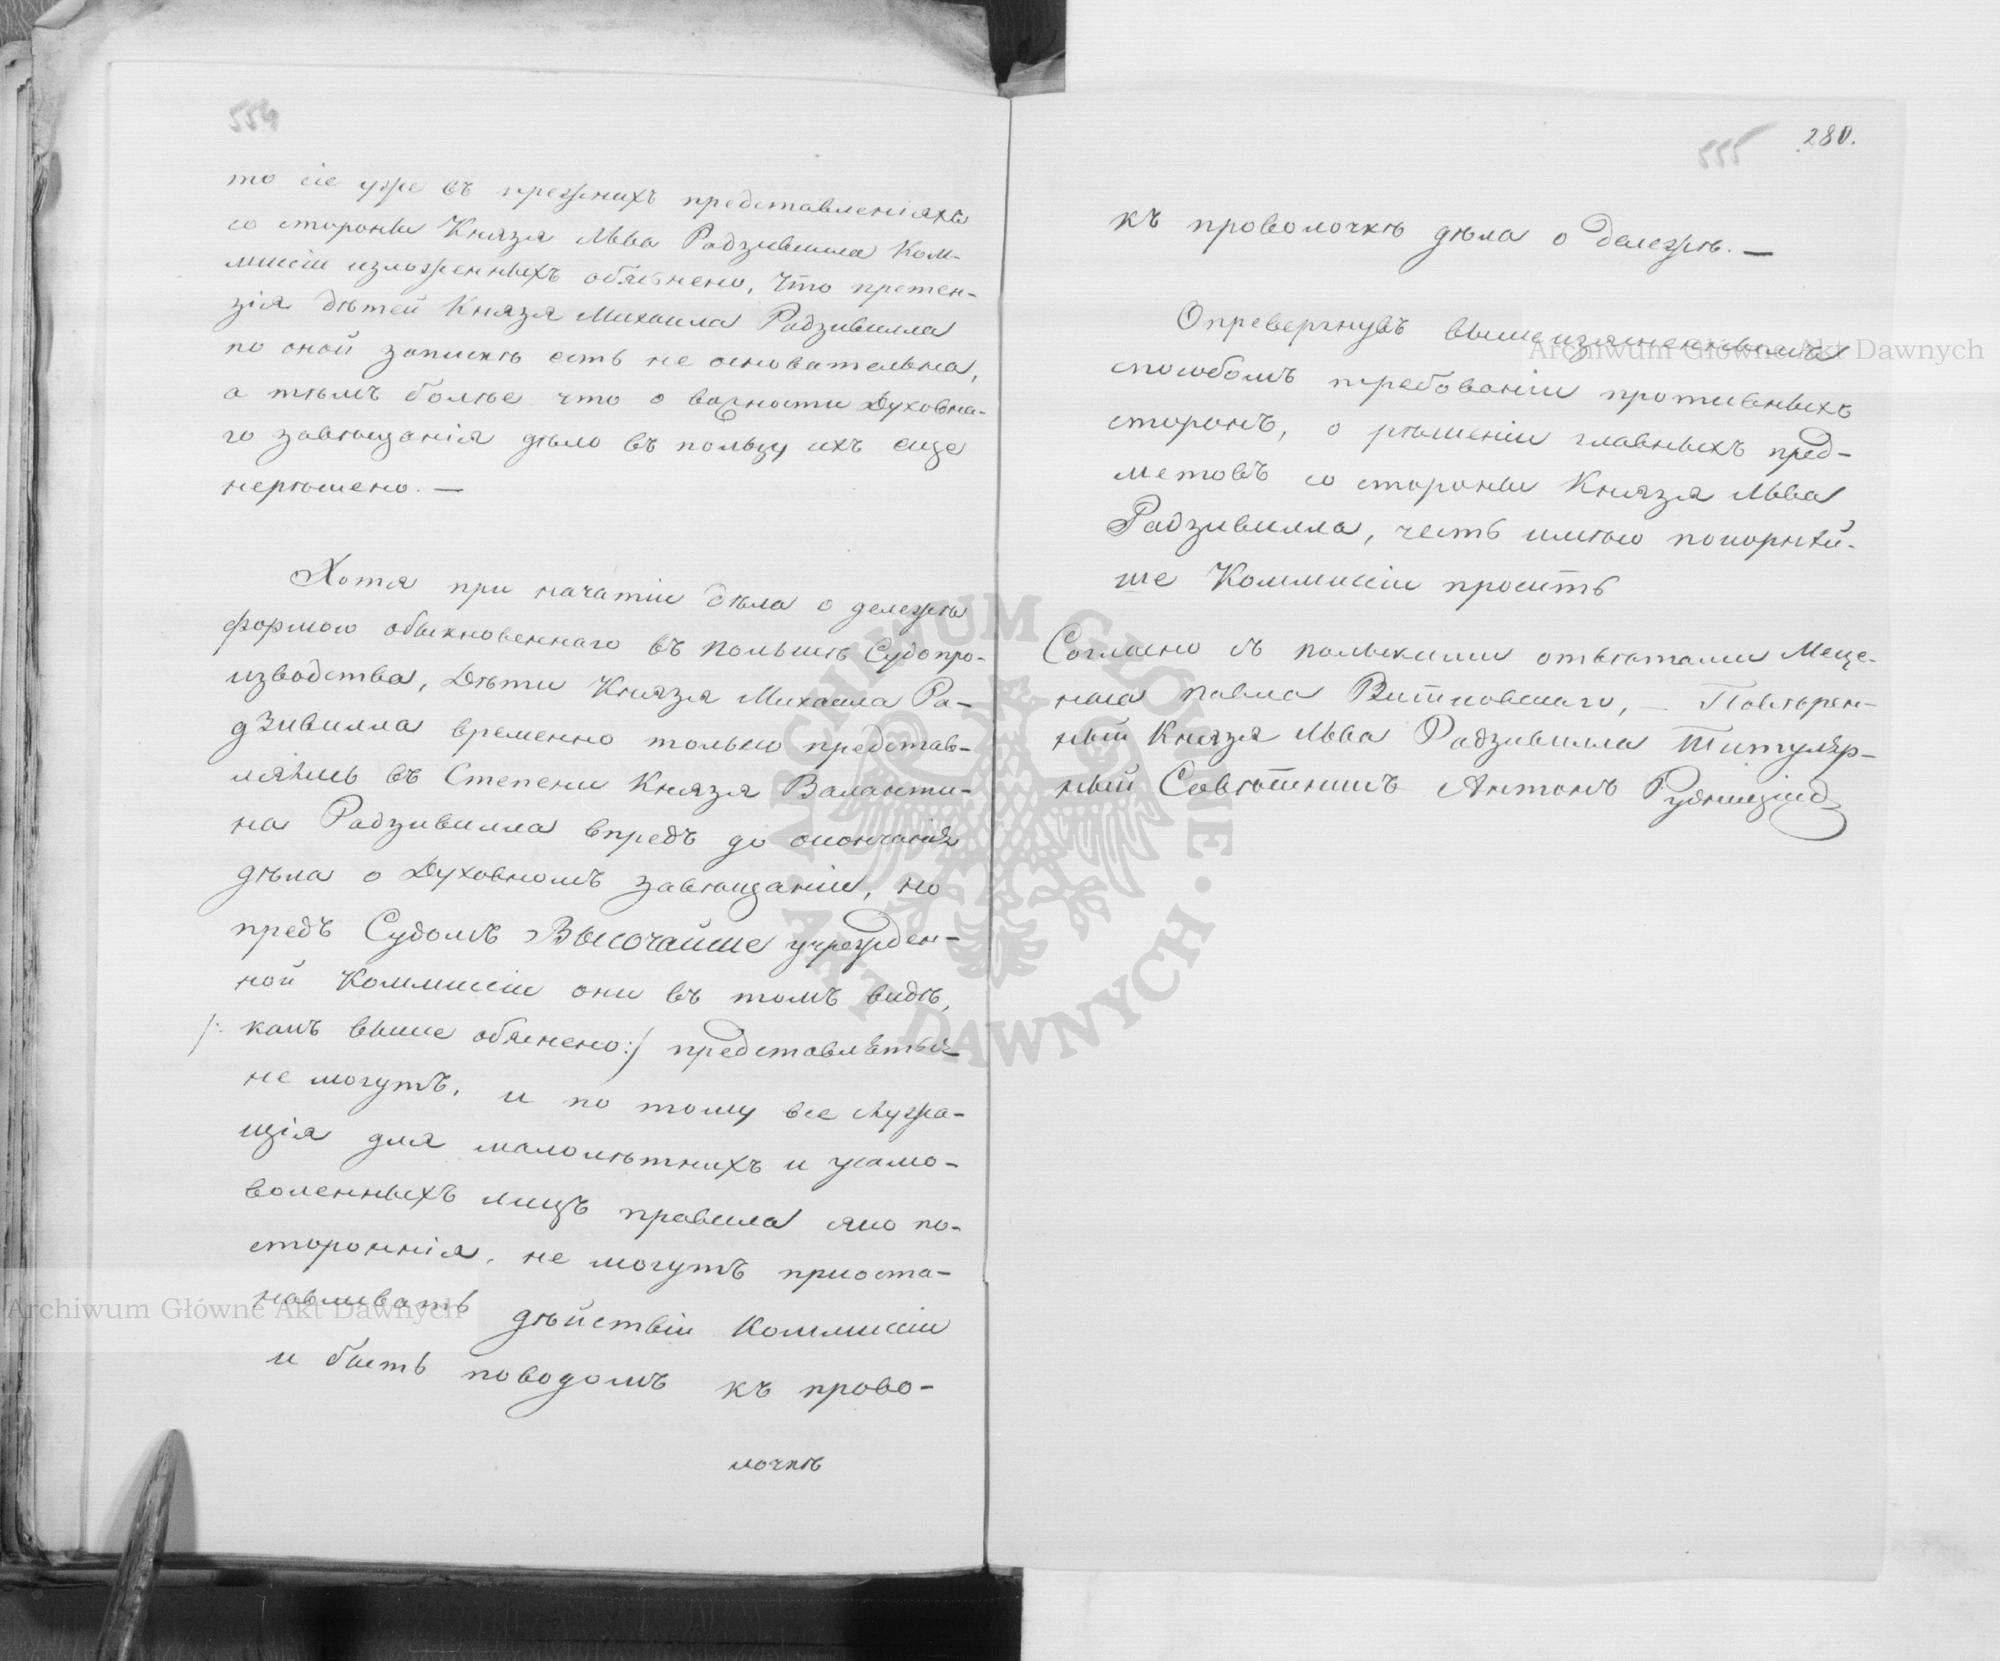 554
то сіе уже въ прежнихъ представленіяхъ
со стороны Князя Льва Радзивилла Ком-
мисіи изложенныхъ обяснено, что претен-
зія дѣтей Князя Михаила Радзивилла
по оной запискѣ есть не основательна,
а тѣмъ болѣе что о важности Духовна-
го завѣщанія дѣло въ пользу ихъ еще
нерѣшено. —
Хотя при начатіи дѣла о дележѣ
формою обыкновеннаго въ Польшѣ Судопро-
изводства, Дѣти Князя Михаила Ра-
дзивилла временно только представ-
лялись въ Степени Князя Валанти-
на Радзивилла впредъ до окончанія
дѣла о Духовномъ завѣщаніи, но
предъ Судомъ Высочайше учрежден-
ной Коммиссіи они въ томъ видѣ,
/: какъ выше обяснено :/ представляться
не могутъ, и по тому все
для малолѣтнихъ и усамо-
воленныхъ лицъ правила яко по-
стороннія, не могутъ приоста-
навливать дѣйствіи Коммиссіи
и быть поводомъ къ прово-
лочкѣ
555 280.
къ проволочкѣ дѣла о дележѣ. —
Опревергнувъ вышеизясненнымъ
способомъ требованіи противныхъ
сторонъ, о рѣшеніи главныхъ пред-
метовъ со стороны Князя Льва
Радзивилла, честь имѣю покорнѣй-
ше Коммиссіи просить
Согласно съ польскими отвѣтами Меце-
наса Павла Витковскаго, — Повѣрен-
ный Князя Льва Радзивилла Титуляр-
ный Совѣтникъ Антонъ Рудницкій
Archiwum Główne Akt Dawnych
Archiwum Główne Akt Dawnych
ARCHIWUM GŁÓWNE AKT DAWNYCH